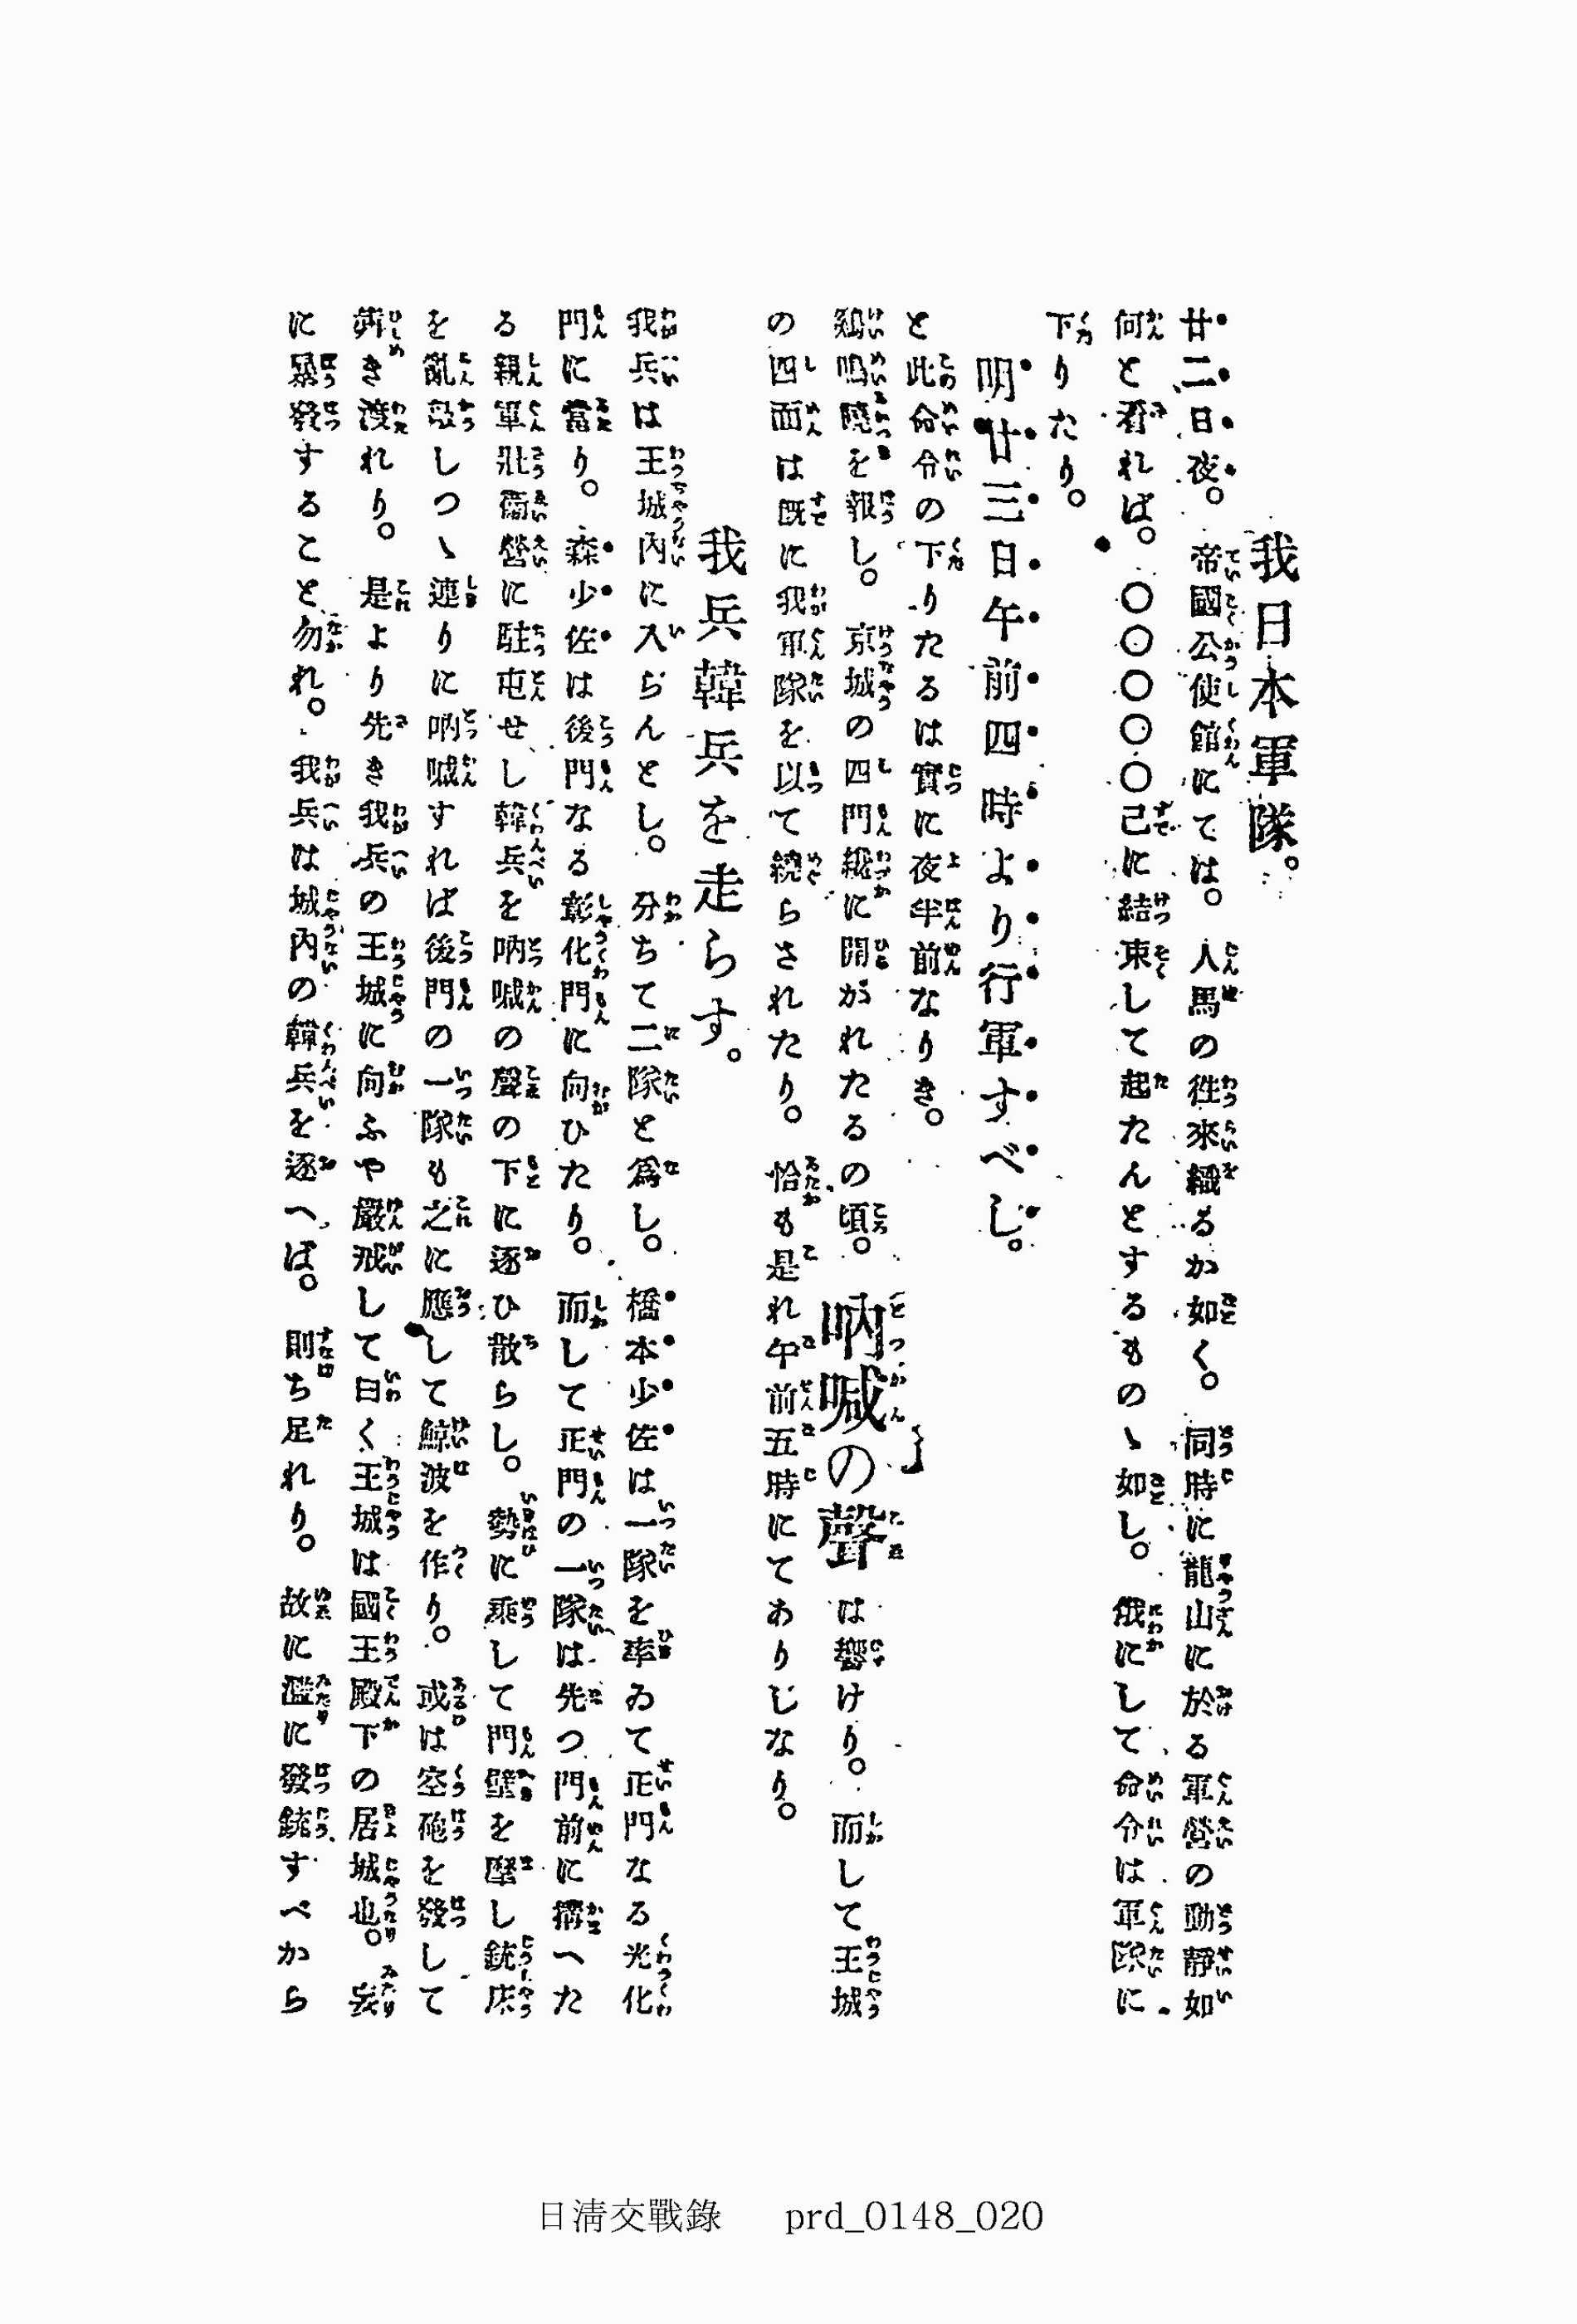 我日本軍隊。
廿二日夜。帝國公使館にては。人馬の徃來織るか如く。同時に龍山に於る軍營の動靜如
何と看れば。〇〇〇〇〇己に結束して起たんとするものゝ如し。俄にして命令は軍隊に
下りたり。
明廿三日午前四時より行軍すべし。
と此命令の下りたるは實に夜半前なりき。
鷄鳴曉を報し。京城の四門纔に開かれたるの頃。吶喊の聲は響けり。而して王城
の四面は既に我軍隊を以て繞らされたり。恰も是れ午前五時にてありしなり。
我兵韓兵を走らす。
我兵は王城內に入らんとし。分ちて二隊と爲し。橋本少佐は一隊を率ゐて正門なる光化
門に當り。森少佐は後門なる彰化門に向ひたり。而して正門の一隊は先つ門前に搆へた
る親軍壯衞營に駐屯せし韓兵を吶喊の聲の下に逐ひ散らし。勢に乘して門壁を壓し銃床
を亂毆しつゝ連りに吶喊すれば後門の一隊も之に應して鯨波を作り。或は空砲を發して
犇き渡れり。是より先き我兵の王城に向ふや嚴戒して曰く王城は國王殿下の居城也。妄
に暴發すること勿れ。我兵は城內の韓兵を逐へば。則ち足れり。故に濫に發銃すべから
日淸交戰錄 prd_0148_020